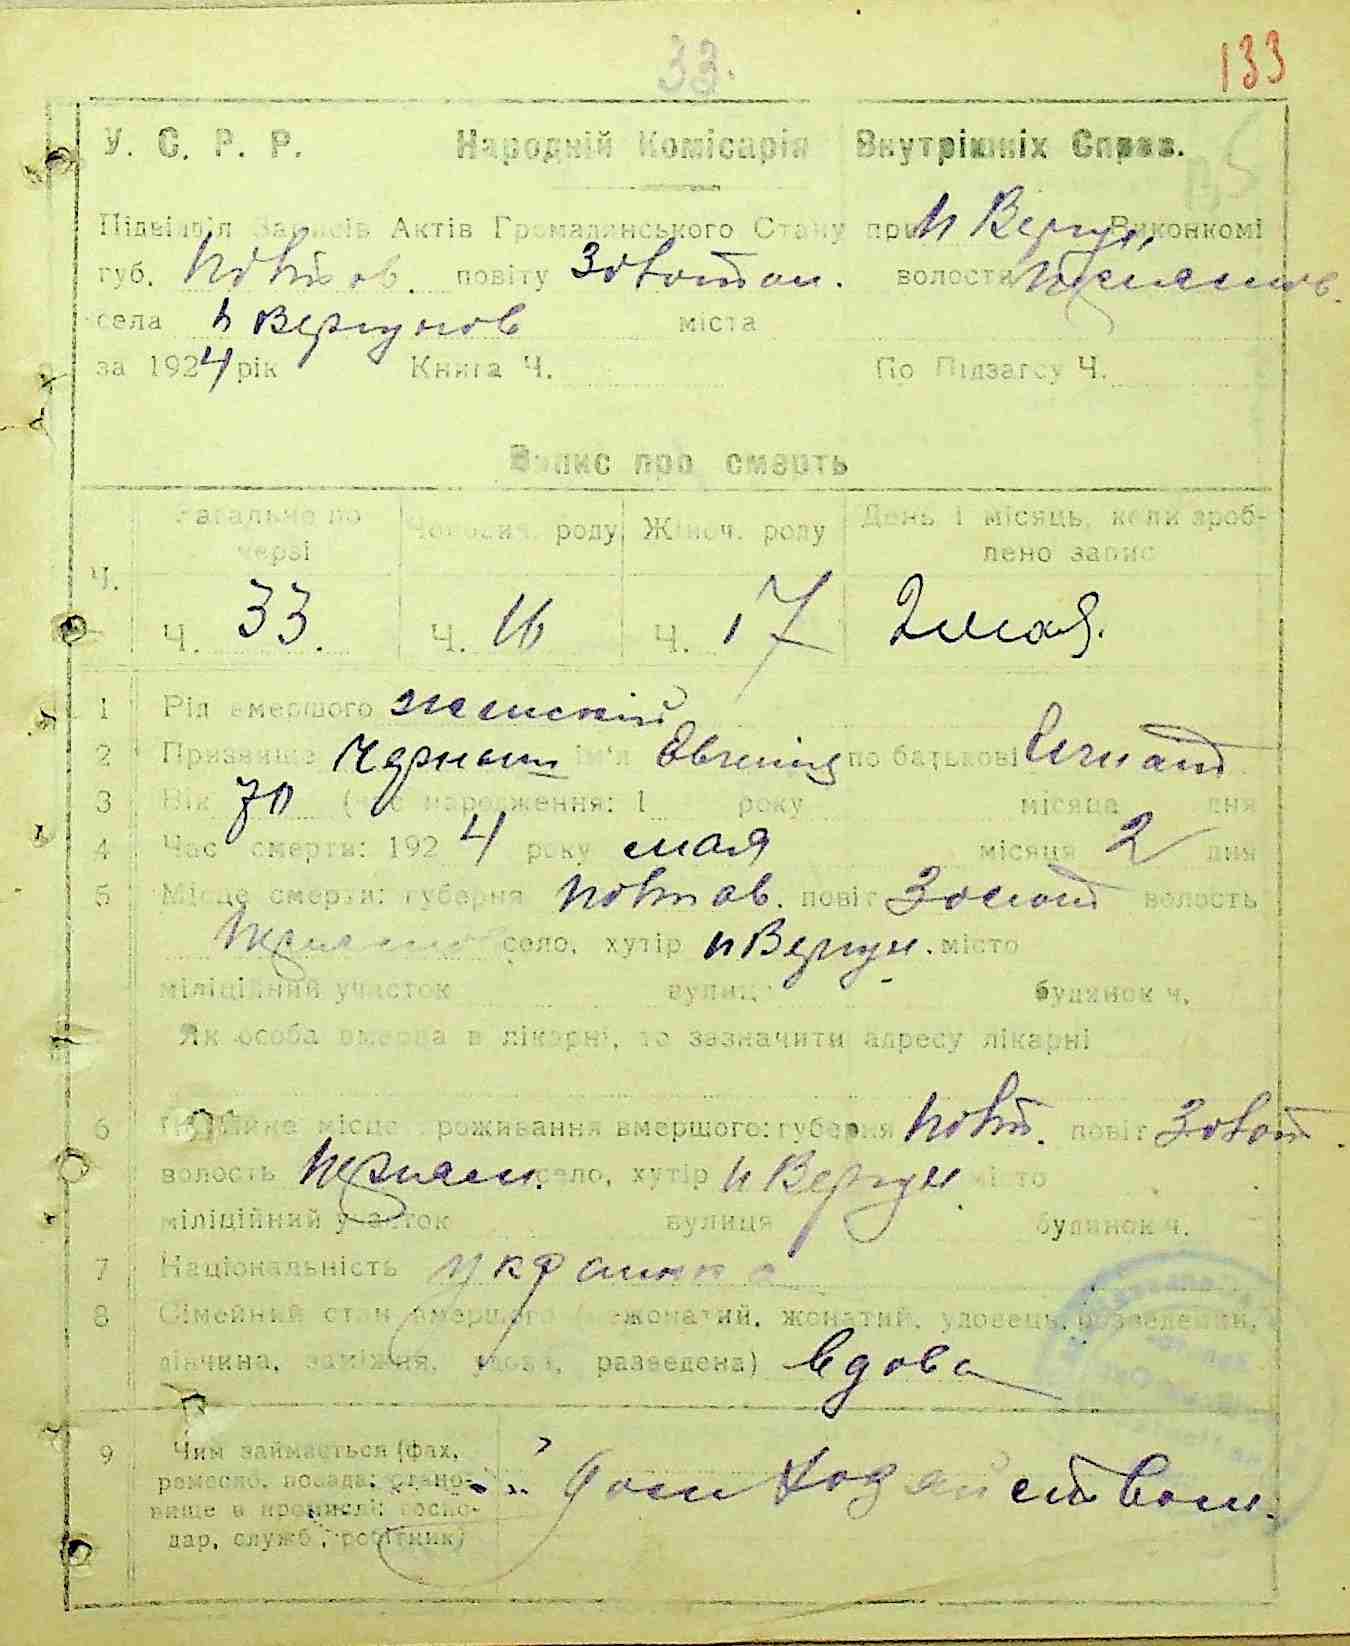 33.
133
У. С. Р. Р. Народній Комісарія Внутрішніх Справ.
Підвідділ Записів Актів Громадянського Стану при Н Вергун. Виконкомі
губ. Полтав. повіту Золотон. волости
села Н Вергунов міста
за 1924 рік Книга Ч. По Підзагсу Ч.
Запис про смерть
Загальне по черзі
Чоловіч. роду
Жіноч. роду
День і місяць, коли зроблено запис
Ч.
Ч. 33.
Ч. 16
Ч. 17
2 мая.
1 Рід вмершого женский
2 Призвище ім'я по батькові Игнат
3 Вік 70 (час народження: 1 року місяца дня
4 Час смерти: 1924 року мая місяця 2 дня
5 Місце смерти: губерня Полтав. повіт Золот волость
село, хутір Н Вергун. місто
міліційний участок вулиця будинок ч.
Як особа вмерла в лікарні, то зазначити адресу лікарні
6 Постійне місце проживання вмершого: губерня Полт. повіт Золот.
волость село, хутір Н Вергун місто
міліційний участок вулиця будинок ч.
7 Національність украинка
8 Сімейний стан вмершого (нежонатий, жонатий, удовець, розведений,
дівчина, заміжня, удова, разведена) вдова
9 Чим займається (фах,
ремесло, посада; стано-
вище в промислі: госпо-
дар, служб., робітник)
дом хозяйством.